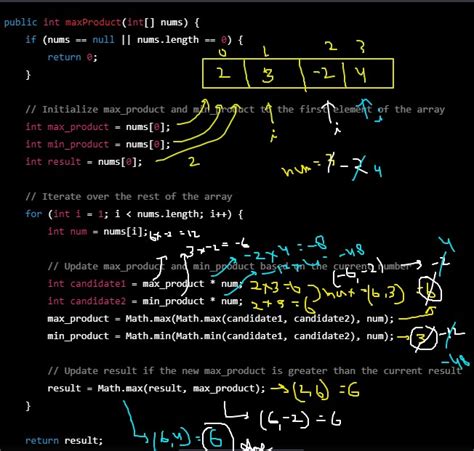 public int maxProduct(int[] nums) {
if (nums == null || nums.length == 0) {
return 0;
}
0 1 2 3
2 3 -2 4
// Initialize max_product and min_product to the first element of the array
int max_product = nums[0];
int min_product = nums[0];
int result = nums[0];
2
i
i
i
num = 3 -2 4
// Iterate over the rest of the array
for (int i = 1; i < nums.length; i++) {
int num = nums[i];
6x-2=12
3x-2=-6
-2x4=-8
-12x4=-48
// Update max_product and min_product based on the current number
(-6,-2) → -2 4
int candidate1 = max_product * num; 2x3=6
int candidate2 = min_product * num; 2x3=6
max-(6,3) = 6
max_product = Math.max(Math.max(candidate1, candidate2), num);
min_product = Math.min(Math.min(candidate1, candidate2), num); → 3 -12
-48
// Update result if the new max_product is greater than the current result
result = Math.max(result, max_product); → (2,6) = 6
}
(6,-2) = 6
return result;
(6,4) = 6